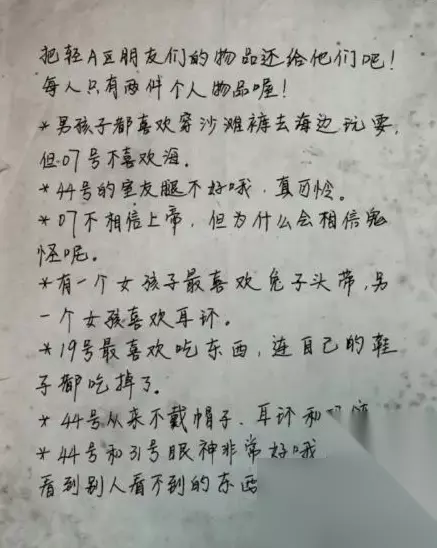 把轻A区朋友们的物品还给他们吧!
每人只有两件个人物品喔!
*男孩子都喜欢穿沙滩裤去海边玩耍,
但07号不喜欢海。
*44号的室友腿不好哦,真可怜。
*07不相信上帝,但为什么会相信鬼
怪呢。
*有一个女孩子最喜欢兔子头带,另
一个女孩喜欢耳环。
*19号最喜欢吃东西,连自己的鞋
子都吃掉了。
*44号从来不戴帽子、耳环和
*44号和31号眼神非常好哦
看到别人看不到的东西